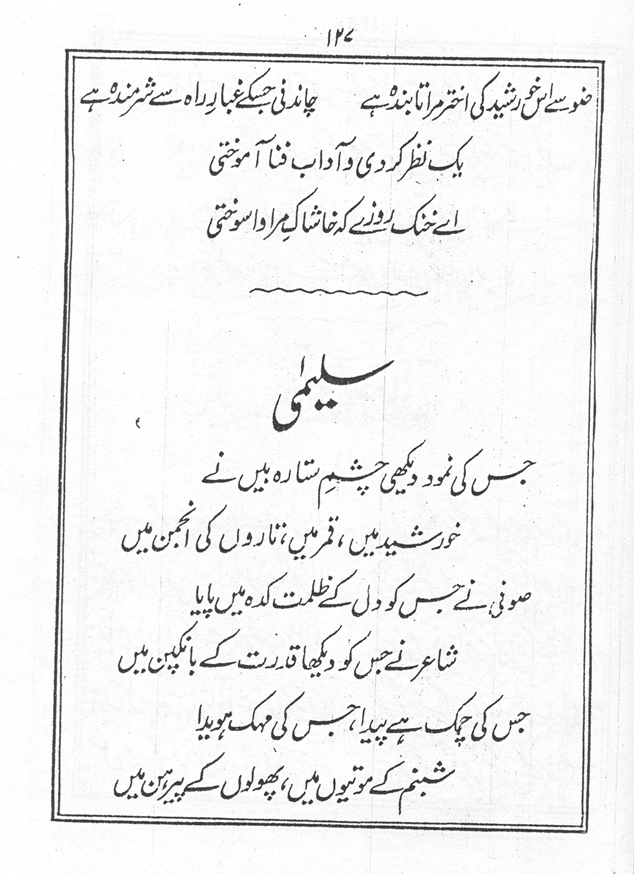 ۱۲۷
ضو سے اس خورشید کی اختر مرا تابندہ ہے چاندنی جسکے غبارِ راہ سے شرمندہ ہے
یک نظر کر دی و آداب فنا آموختی
اے خنک روزے کہ خاشاکِ مرا وا سوختی
سلیمیٰ
جس کی نمود دیکھی چشمِ ستارہ بیں نے
خورشید میں، قمر میں، تاروں کی انجمن میں
صوفی نے جس کو دل کے ظلمت کدہ میں پایا
شاعر نے جس کو دیکھا قدرت کے بانکپن میں
جس کی چمک ہے پیدا، جس کی مہک ہویدا
شبنم کے موتیوں میں، پھولوں کے پیرہن میں